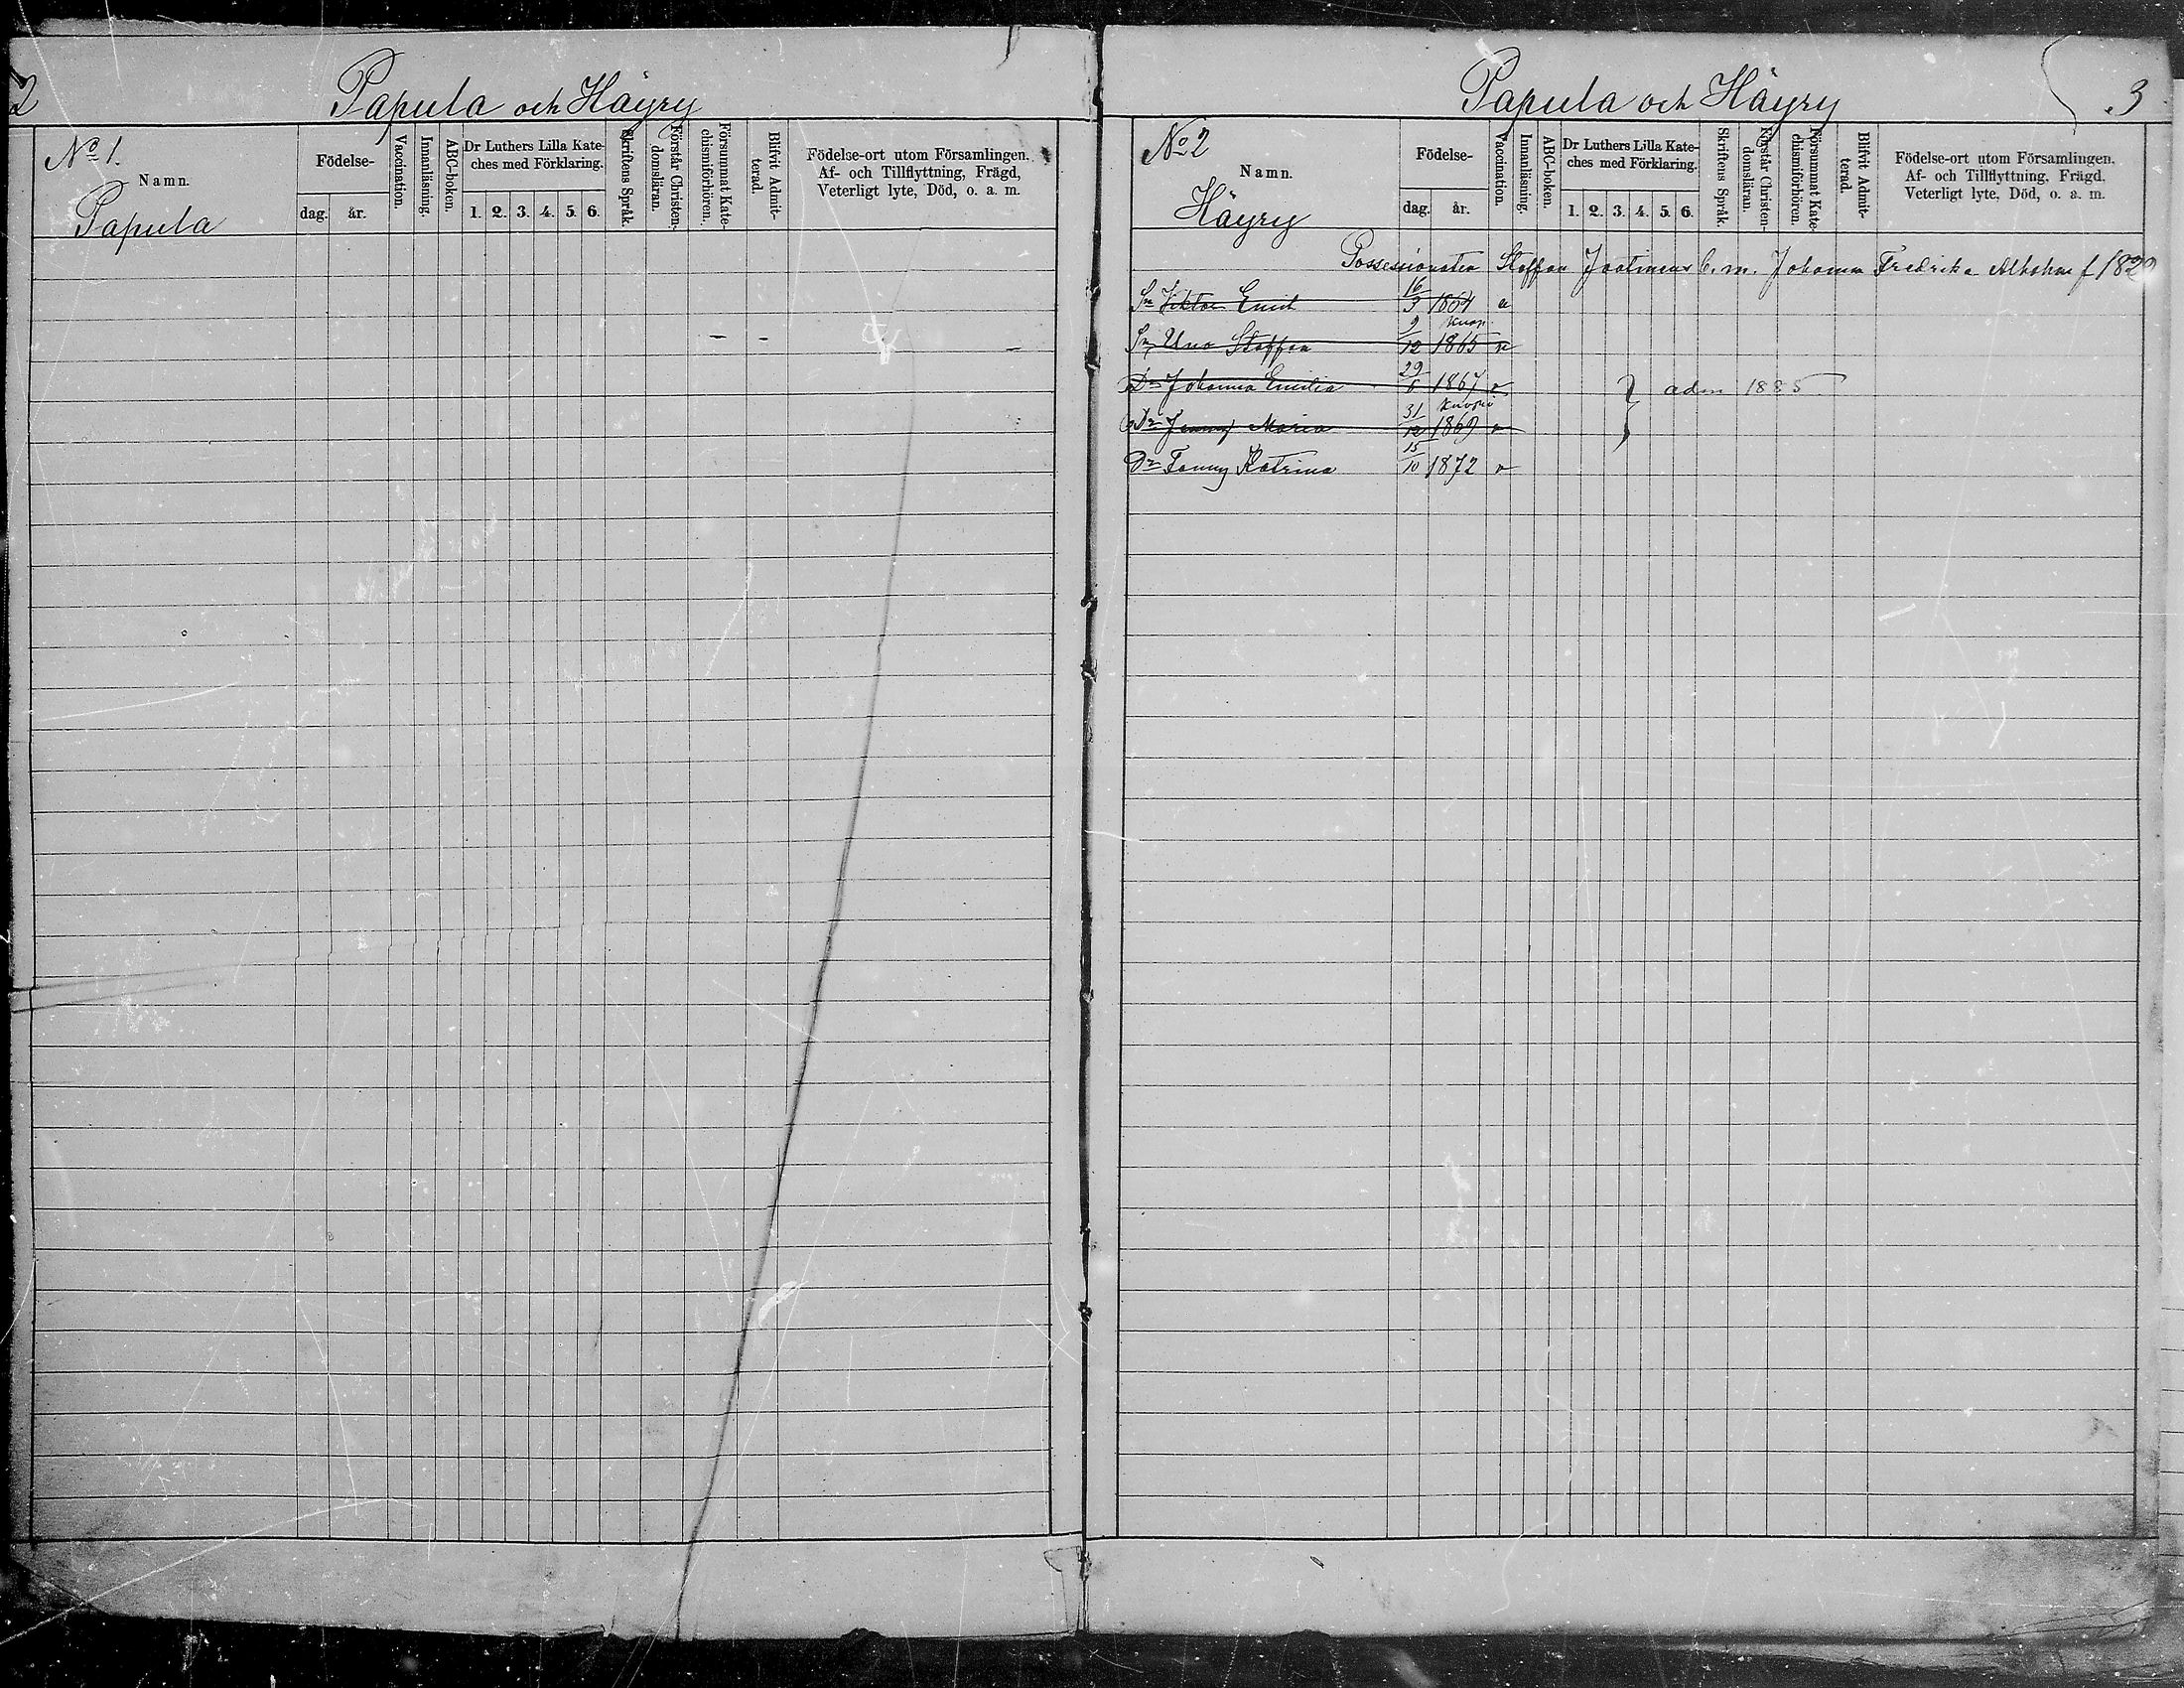 2
Papula och Häyry
No 1.
Namn.
Papula
Födelse-
dag. år.
Vaccination.
Innanläsning.
ABC-boken.
Dr Luthers Lilla Kate-
ches med Förklaring.
1. 2. 3. 4. 5. 6.
Skriftens Språk.
Förstår Christen-
domsläran.
Försummat Kate-
chismiförhören.
Blifvit Admit-
terad.
Födelse-ort utom Församlingen.
Af- och Tillflyttning, Frägd,
Veterligt lyte, Död, o. a. m.
Papula och Häyry
3
No 2
Namn.
Häyry
Födelse-
dag. år.
Vaccination.
Innanläsning.
ABC-boken.
Dr Luthers Lilla Kate-
ches med Förklaring.
1. 2. 3. 4. 5. 6.
Skriftens Språk.
Förstår Christen-
domsläran.
Försummat Kate-
chismiförhören.
Blifvit Admit-
terad.
Födelse-ort utom Församlingen.
Af- och Tillflyttning, Frägd,
Veterligt lyte, Död, o. a. m.
Staffan m. Johanna Fredrika f 1829
Sn Viktor Emil 16/3 1864
Sn Uno Staffan 9/12 1865 v
Dr Johanna Emilia 29/6 1867 v } adm 1885
Dr Jenny Maria 31/12 1869 v
Dr Fanny Katrina 15/10 1872 v